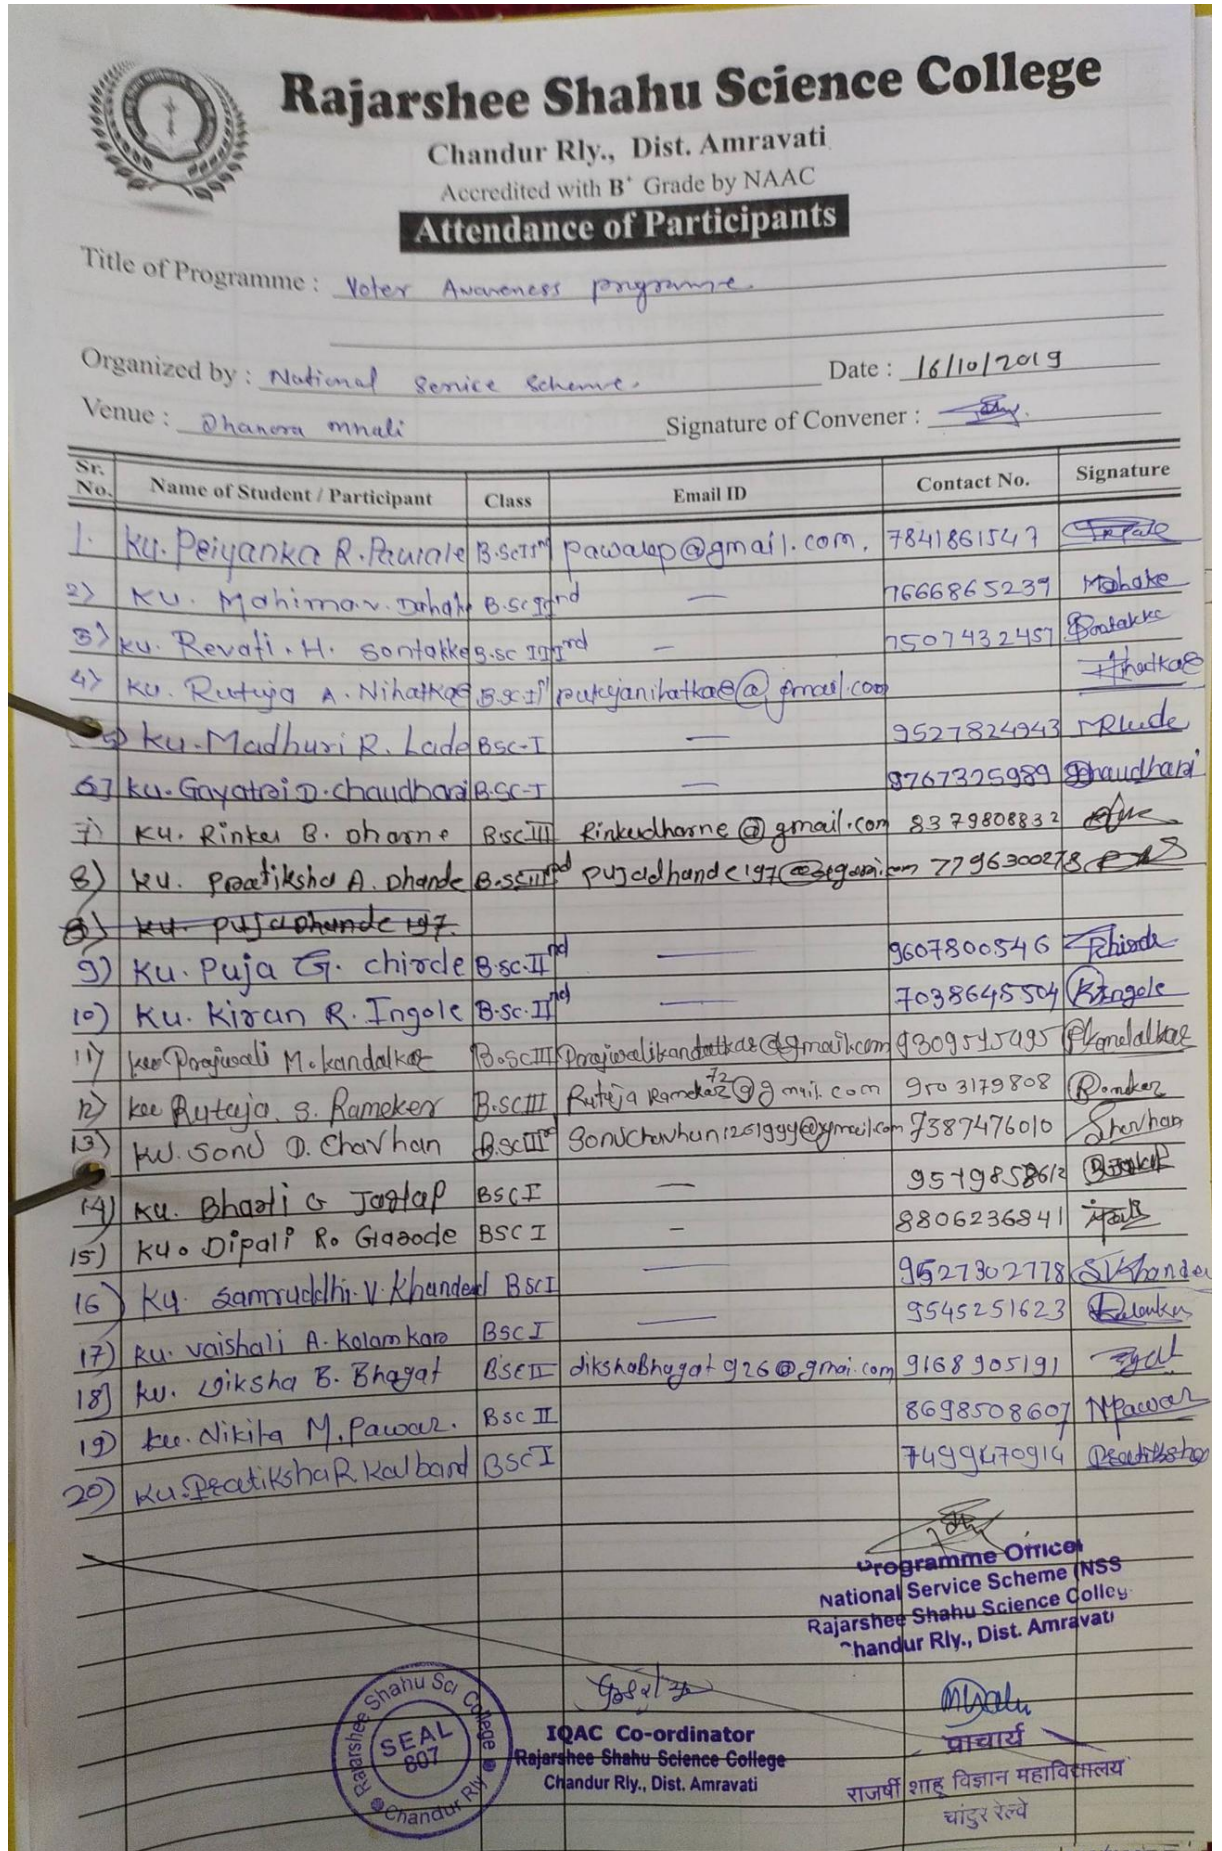 Rajarshee Shahu Science College
Chandur Rly., Dist. Amravati
Accredited with B+ Grade by NAAC
Attendance of Participants
Title of Programme : Voter Awareness programme.
Organized by : National Service Scheme. Date : 16/10/2019
Venue : Dhanora mhali Signature of Convener :
Sr. No. Name of Student / Participant Class Email ID Contact No. Signature
1. Ku. Peiyanka R. Pawale B.Sc @gmail.com. 7841861547
2) Ku. Mahima.v. Dahake B.Sc — 7666865239
3) Ku. Revati. H. Sontakke B.sc IIIrd — 7507432457
4) Ku. Rutuja A. Nihatkae B.Sc-I
5) Ku. Madhuri R. Lade BSC-I — 9527824943
6] Ku. Gayatrei D. chaudhari B.SC-I — 9767325989 Chaudhari
7) Ku. Rinku B. Dharne B.SC III Rinkudharne@gmail.com 8379808832
8) Ku. Pratiksha A. Dhande 7796300278
8) Ku. Puja Dhande 197.
9) Ku. Puja G. chirde B.SC.IInd — 9607800546
10) Ku. Kiran R. Ingole B.Sc.IInd — 7038645504 Kingole
11) Ku Prajwali M. kandalkar B.SC III
12) Ku Rutuja. S. Rameker B.SC III 9503179808
13) Ku. Sonu D. Chavhan 7387476010
14) Ku. Bharti G Jagtap BSC I —
15) Ku. Dipali R. Gasode BSC I - 8806236841
16) Ku. Samruddhi. V. Khanderd BSCI — 9527302778
17) Ku. Vaishali A. Kolamkar BSC I — 9545251623
18] Ku. Diksha B. Bhagat BSC II dikshaBhagat926@gmai.com 9168905191
19) Ku. Nikita M. Pawar. BSC II 8698508607 NPawar
20) Ku. Pratiksha R. Kalband BSC I 7499470914 Pratiksha
Programme Officer
National Service Scheme (NSS
Rajarshee Shahu Science Colleg
Chandur Rly., Dist. Amravati
Rajarshee Shahu Sci College
SEAL
807
Chandur Rly
IQAC Co-ordinator
Rajarshee Shahu Science College
Chandur Rly., Dist. Amravati
प्राचार्य
राजर्षी शाहू विज्ञान महाविद्यालय
चांदुर रेल्वे